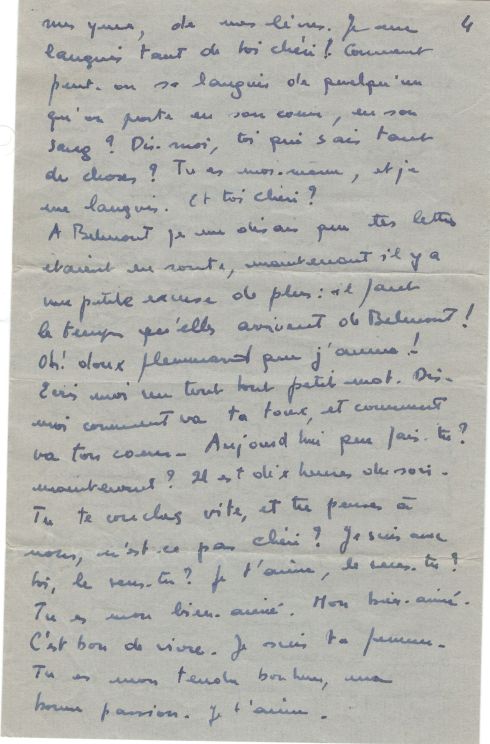 4
mes yeux, de mes lèvres. Je me
languis tant de toi chéri! Comment
peut-on se languir de quelqu'un
qu'on porte en son cœur, en son
sang? Dis-moi, toi qui sais tant
de choses? Tu es moi-même, et je
me languis. Et toi chéri?
A Belmont je me disais que tes lettres
étaient en route, maintenant il y a
une petite excuse de plus: il faut
le temps qu'elles arrivent de Belmont!
Oh! doux flemmard que j'aime!
Ecris moi un tout tout petit mot. Dis-
moi comment va ta toux, et comment
va ton cœur- Aujourd'hui que fais-tu?
maintenant? Il est dix heures du soir.
Tu te couches vite, et tu penses à
nous, n'est-ce pas chéri? Je suis avec
toi, le sens-tu? Je t'aime, le sens-tu?
Tu es mon bien-aimé. Mon bien-aimé.
C'est bon de vivre. Je suis ta femme.
Tu es mon tendre bonheur, ma
bonne passion. Je t'aime.